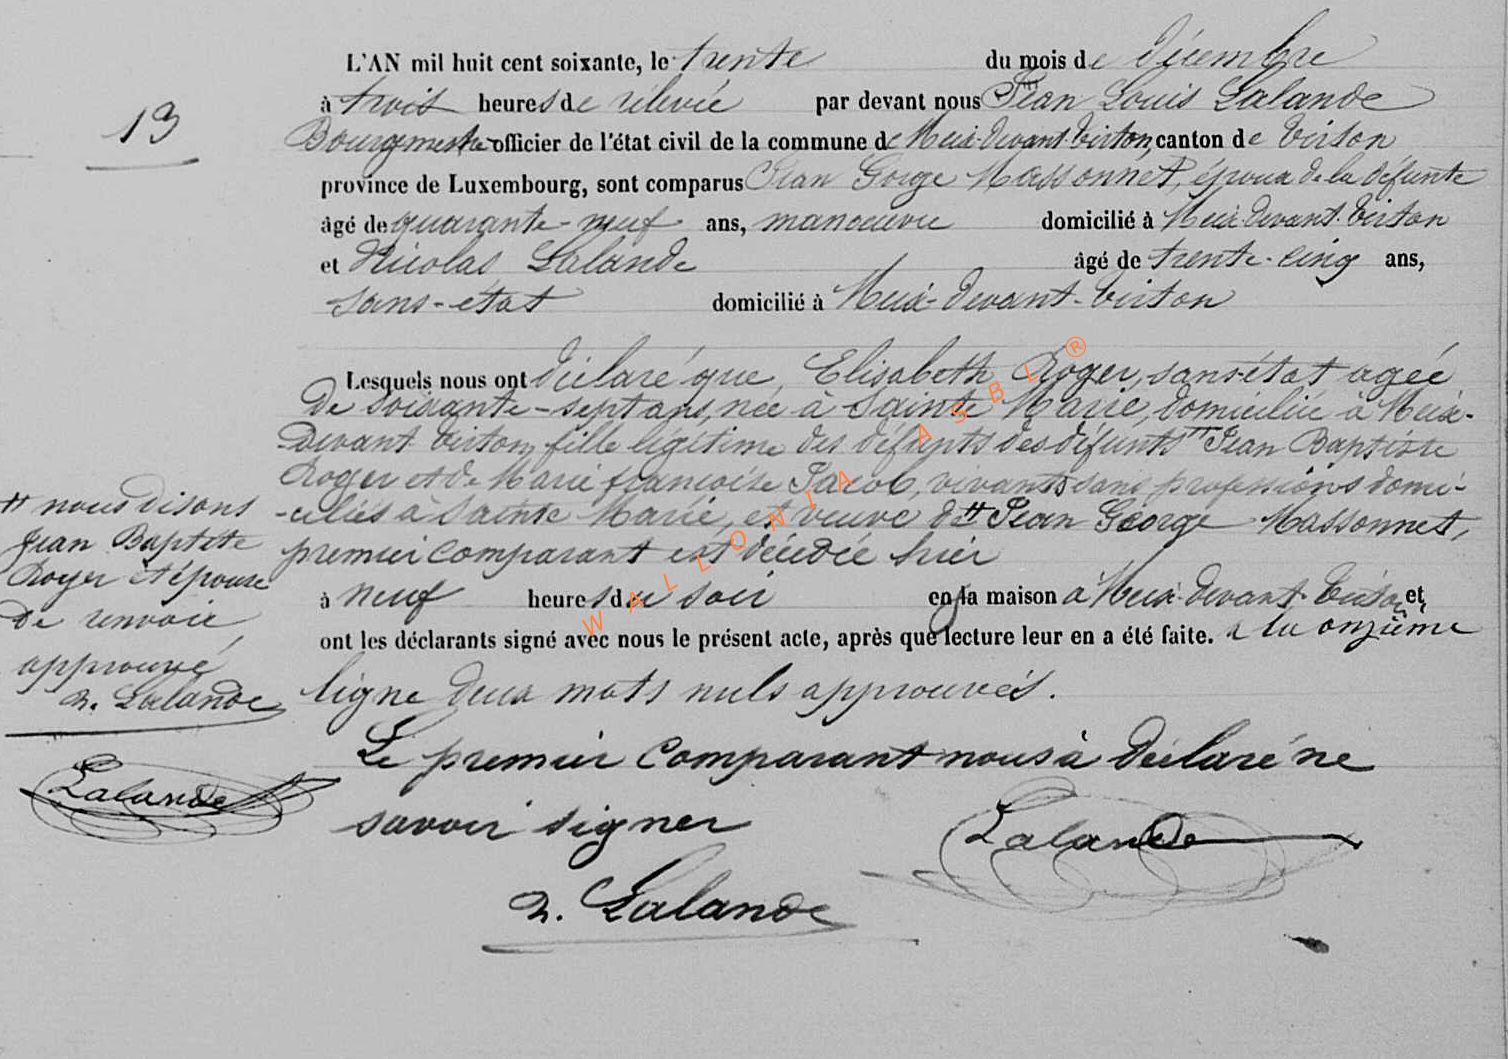 13
L'AN mil huit cent soixante, le trente du mois de décembre
à trois heures de rélevée par devant nous Jean Louis Lalande
Bourgmestre officier de l'état civil de la commune de Meix-devant-Virton, canton de Virton
province de Luxembourg, sont comparus Jean Gorge Massonnet, époux de la défunte
âgé de quarante-neuf ans, manoeuvre domicilié à Meix-devant-Virton
et Nicolas Lalande âgé de trente-cinq ans,
sans-état domicilié à Meix-devant-Virton
Lesquels nous ont déclaré que, Elisabeth Roger, sans état agée
de soixante-sept ans, née à Sainte Marie, domiciliée à Meix-
devant Virton, fille légitime des défunts des défunts " Jean Baptiste
Roger et de Marie francoise Jacob, vivants sans professions domi-
-ciliés à Sainte Marie, et veuve d # Jean George Massonnet,
premier comparant est décédée hier
à neuf heures du soir en la maison à Meix-devant-Virton et
ont les déclarants signé avec nous le présent acte, après que lecture leur en a été faite. à la onzième
ligne deux mots nuls approuvés.
Le premier comparant nous à déclaré ne
savoir signer
Lalande
N. Lalande
# nous disons
Jean Baptiste
Roger et épouse
de renvoie
approuvé
N. Lalande
Lalande
WALLONIA ASBL ®